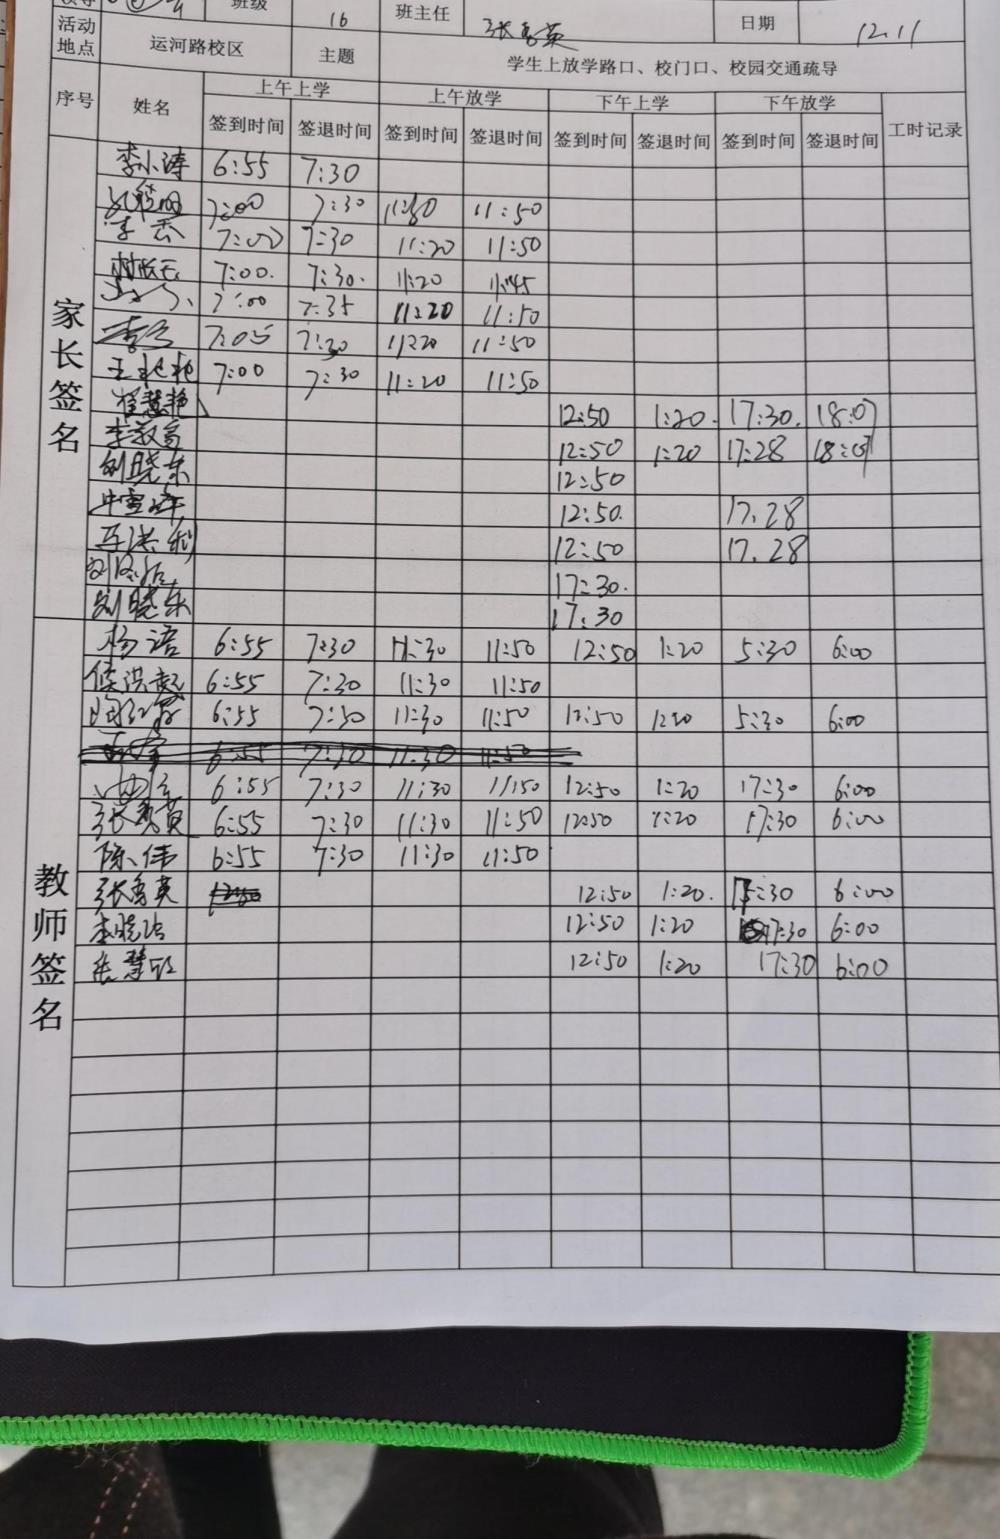 班级 16 班主任 张秀英 日期 12.11
活动地点 运河路校区 主题 学生上放学路口、校门口、校园交通疏导
序号 姓名 上午上学 上午放学 下午上学 下午放学 工时记录
签到时间 签退时间 签到时间 签退时间 签到时间 签退时间 签到时间 签退时间
家长签名
李小涛 6:55 7:30
7:00 7:30 11:50
7:00 7:30 11:20 11:50
7:00. 7:30. 11:20 11:45
7:00 7:35 11:20 11:50
7:05 7:30 11:20 11:50
王艳艳 7:00 7:30 11:20 11:50
崔慧艳 12:50 1:20. 17:30. 18:07
李教富 12:50 1:20 17:28 18:07
刘晓东 12:50
12:50. 17.28
12:50 17.28
17:30.
刘晓东 17:30
教师签名
杨语 6:55 7:30 11:30 11:50 12:50 1:20 5:30 6:00
侯洪超 6:55 7:30 11:30 11:50
6:55 7:30 11:30 11:50 12:50 1:20 5:30 6:00
6:55 7:30 11:30 11:50
6:55 7:30 11:30 11:50 12:50 1:20 17:30 6:00
张秀英 6:55 7:30 11:30 11:50 12:50 1:20 17:30 6:00
陈伟 6:55 7:30 11:30 11:50
张秀英 12:50 1:20. 5:30 6:00
李晓 12:50 1:20 17:30 6:00
12:50 1:20 17:30 6:00